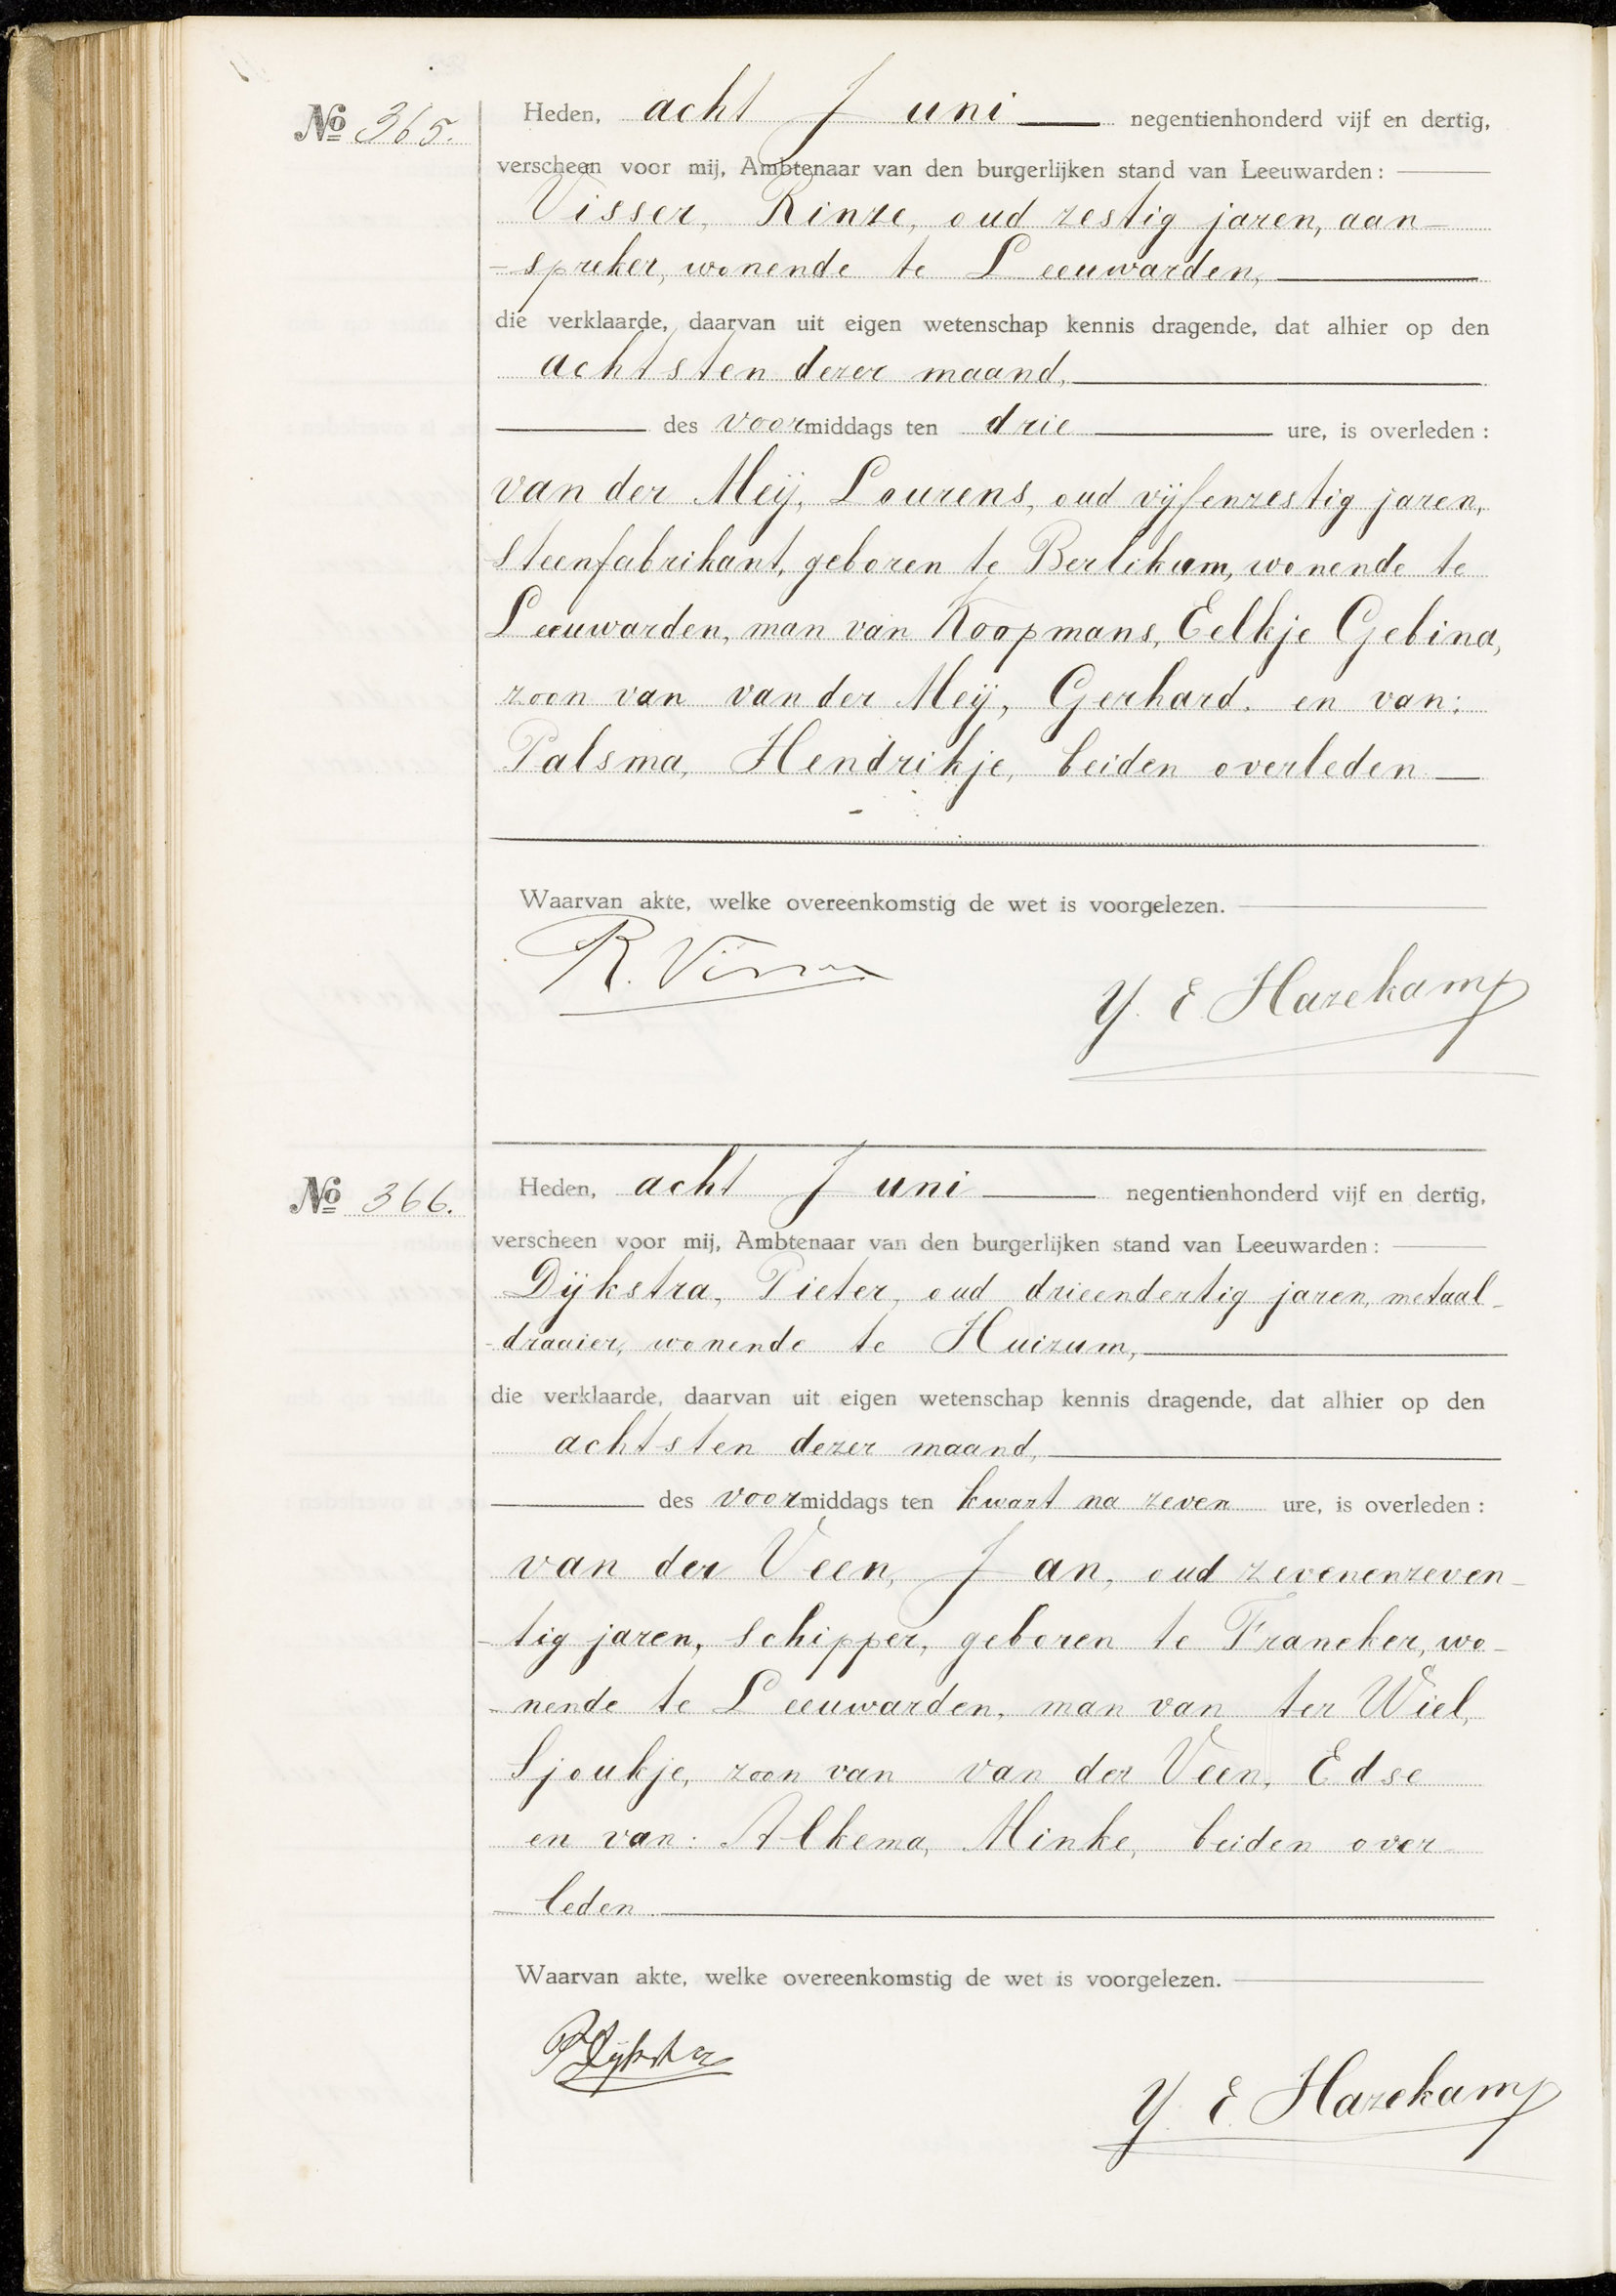 Nº 365.
Heden, acht Juni negentienhonderd vijf en dertig,
verscheen voor mij, Ambtenaar van den burgerlijken stand van Leeuwarden:
Visser, Rinze, oud zestig jaren, aan-
-spreker, wonende te Leeuwarden,
die verklaarde, daarvan uit eigen wetenschap kennis dragende, dat alhier op den
achtsten dezer maand,
des voormiddags ten drie ure, is overleden:
van der Meij, Lourens, oud vijfenzestig jaren,
steenfabrikant, geboren te Berlikum, wonende te
Leeuwarden, man van Koopmans, Eelkje Gebina,
zoon van van der Meij, Gerhard. en van:
Palsma, Hendrikje, beiden overleden
Waarvan akte, welke overeenkomstig de wet is voorgelezen.
R. Visser
Y. E Hazekamp
Nº 366.
Heden, acht Juni negentienhonderd vijf en dertig,
verscheen voor mij, Ambtenaar van den burgerlijken stand van Leeuwarden:
Dijkstra, Pieter, oud drieendertig jaren, metaal-
-draaier, wonende te Huizum,
die verklaarde, daarvan uit eigen wetenschap kennis dragende, dat alhier op den
achtsten dezer maand,
des voormiddags ten kwart na zeven ure, is overleden:
van der Veen, Jan, oud zevenenzeven-
-tig jaren, schipper, geboren te Franeker, wo-
-nende te Leeuwarden, man van ter Wiel,
Sjoukje, zoon van van der Veen, Edse
en van: Alkema, Minke, beiden over-
-leden.
Waarvan akte, welke overeenkomstig de wet is voorgelezen.
P Dijkstra
Y. E. Hazekamp